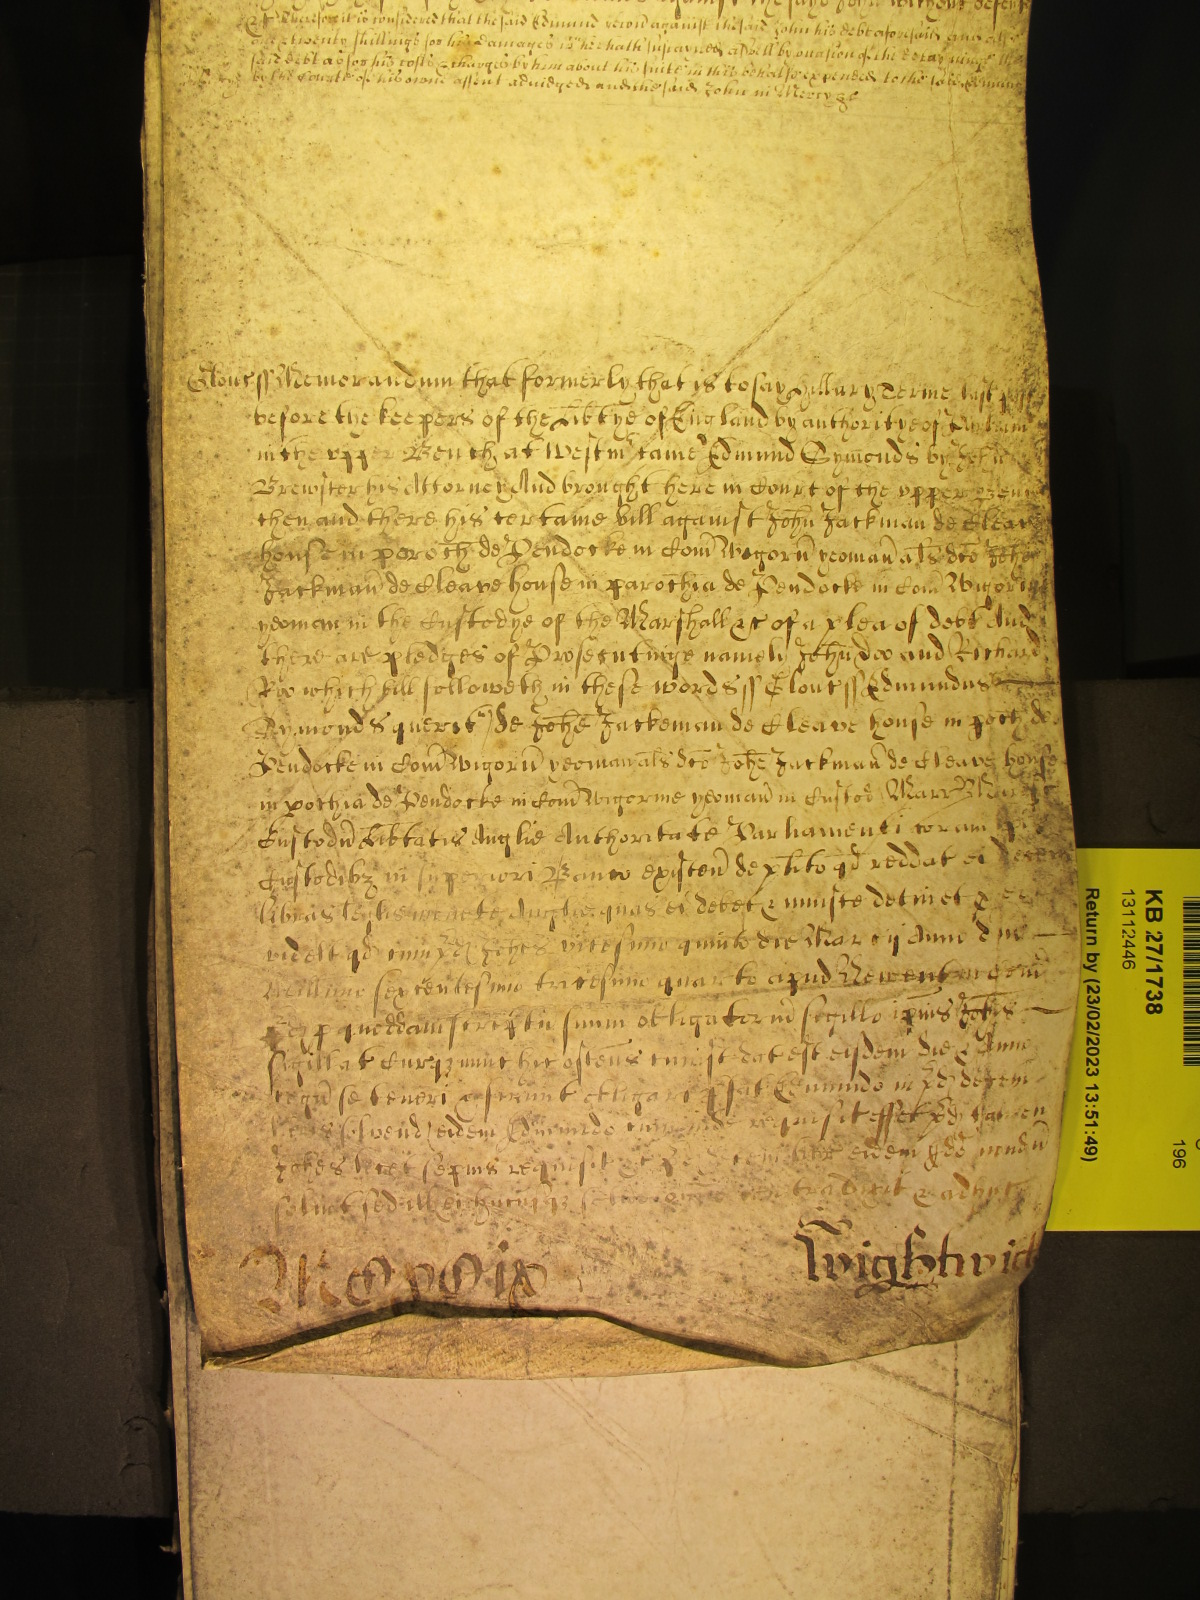 against the sayd John without defence
Therefore it is considered that the said Edmund recover against the said John his debt aforesaid and also
twenty shillings for his damages wch he hath susteyned aswell by occasion of the deteyninge the
said debt as for his costs & charges by him about his suite in this behalfe expended to the said Edmund
by the Courte of his owne assent adiudged and the said John in Mercy &c
Glouc ss Memorandum that formerly that is to say Hillary Terme last past
before the keepers of the libtye of England by authoritye of Parliam
in the upper Bench at Westm came Edmund Symonds by John
Brewster his Attorney And brought here in Court of the upper Bench
then and there his certaine bill against John Jackman de Cleave
house in paroch de Pendocke in Com Wigorn yeoman als dco Johe
Jackman de Cleave house in parochia de Pendocke in Com Wigorn
yeoman in the Custodye of the Marshall &c of a plea of debt And
there are pledges of Prosecutinge namely John Doo and Richard
Roo which bill followeth in these words ss Glouc ss Edmundus
Symonds querit de Johe Jackeman de Cleave house in poch de
Pendocke in Com Wigorn yeoman als dco Johe Jackman de Cleave house
in pochia de Pendocke in Com Wigornie yeoman in Custod Marr
Custodu libtatis Anglie Authoritate Parliamenti coram
Custodibz in superiori Banco existen de plito qd reddat ei decem
libras legalis monete Anglie quas ei debet & iniuste detinet
videlt qd cum pd Johes vicesimo quinto die Marcij Anno dni
Millimo sexcentesimo tricesimo quarto apud Newent in Com
p quoddam scriptu suum obligatoriu sigillo ipius Johis
sigillat Curqz nunc hic ostens cuius dat est eisdem die & Anno
cogn se teneri & firmit obligari pfat Edmundo in pd decem
libris solvend eidem Edmundo cum inde requisit esset pd tamen
Johes licet sepius requisit &c pd decem libr eidem Edd nondu
solvit sed ill ei hucusqz solvere contradixit & adhuc
Wightwick
KB 27/1738
13112446
Return by (23/02/2023 13:51:49)
196